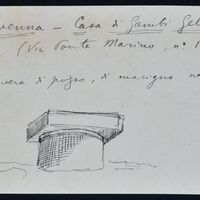 venna – Casa di Gambi Gel
(Via Ponte Marino, n° 1
vera di pozzo, di macigno na